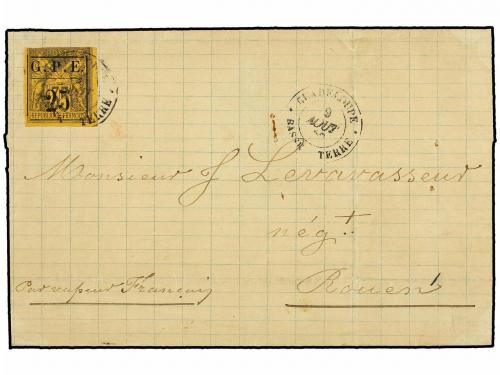 G. P. E.
25
REPUBLIQUE FRANCAISE
TERRE
GUADELOUPE
9
AOUT
BASSE TERRE
Monsieur J Levavasseur
négt.
Rouen
Par vapeur Français